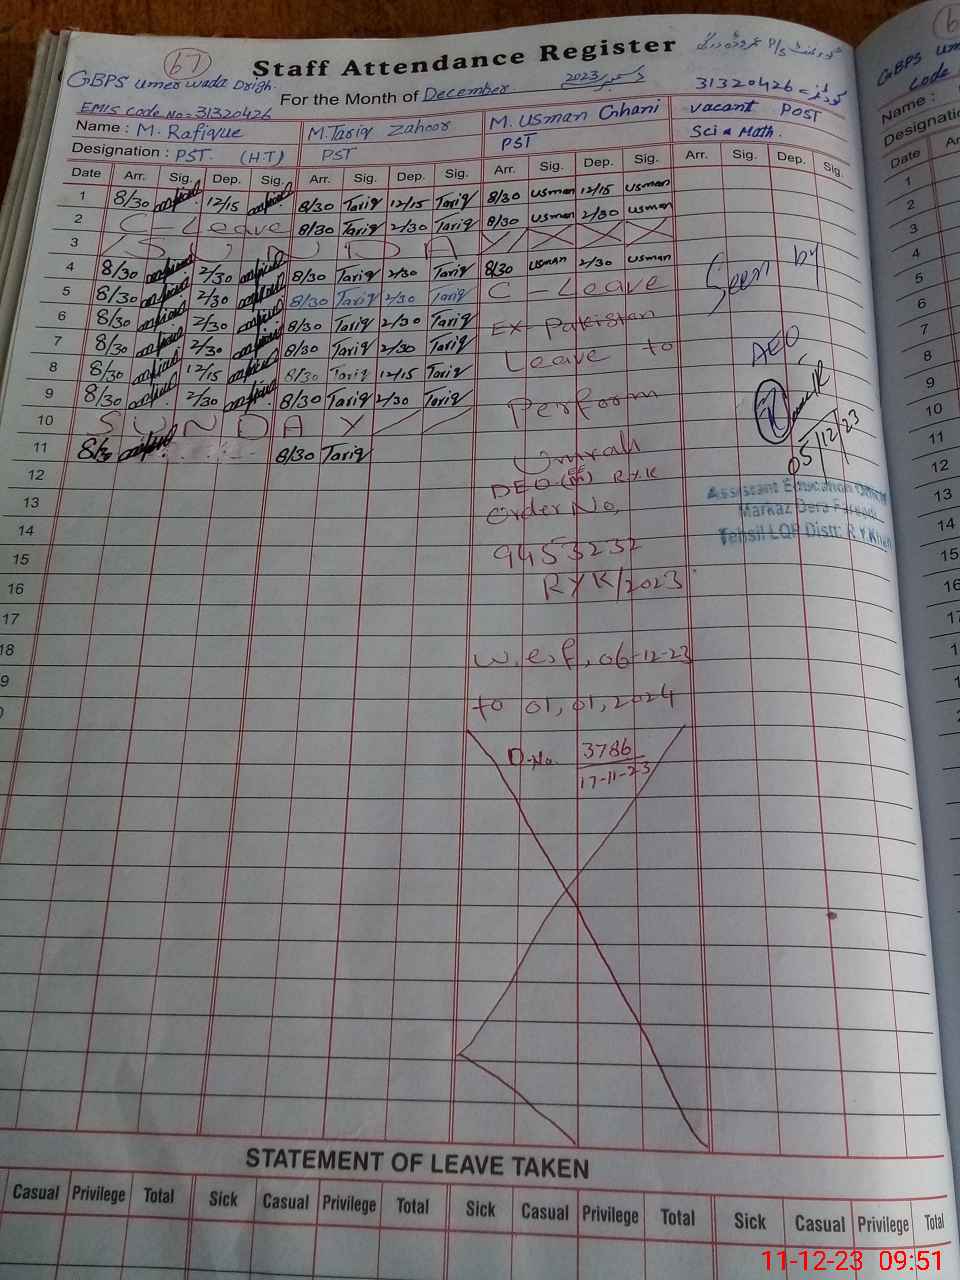 67
Staff Attendance Register
GBPS Umer wada Drigh.
For the Month of December
دسمبر 2023
31320426
EMIS Code No = 31320426
Name : M. Rafique M. Tariq Zahoor M. Usman Ghani vacant Post
Designation : PST. (H.T) PST PST Sci & Math.
Date Arr. Sig. Dep. Sig. Arr. Sig. Dep. Sig. Arr. Sig. Dep. Sig. Arr. Sig. Dep. Sig.
1 8/30 12/15 8/30 Tariq 12/15 Tariq 8/30 usman 12/15 usman
2 C - Leave 8/30 Tariq 2/30 Tariq 8/30 usman 2/30 usman
3 S U N D A Y
4 8/30 2/30 8/30 Tariq 2/30 Tariq 8/30 usman 2/30 usman
5 8/30 2/30 8/30 Tariq 2/30 Tariq C - Leave
6 8/30 2/30 8/30 Tariq 2/30 Tariq Ex-Pakistan
7 8/30 2/30 8/30 Tariq 2/30 Tariq Leave to
8 8/30 12/15 8/30 Tariq 12/15 Tariq Perform
9 8/30 2/30 8/30 Tariq 2/30 Tariq
10 S U N D A Y
11 8/30 8/30 Tariq Umrah
12 DEO (EE) R.Y.K
13 Order No,
14
15 9453232
16 RYK/2023
17
18 w.e.f, 06-12-23
9
to 01,01,2024
D.No. 3786
17-11-23
Seen by
AEO
05/12/23
Assistant Education Officer
Markaz Dera Fareedi
Tehsil LQP Distt: R.Y.Khan
STATEMENT OF LEAVE TAKEN
Casual Privilege Total Sick Casual Privilege Total Sick Casual Privilege Total Sick Casual Privilege Total
GBPS Um
Code
Name :
Designation
Date Ar
1
2
3
4
5
6
7
8
9
10
11
12
13
14
15
16
11-12-23 09:51